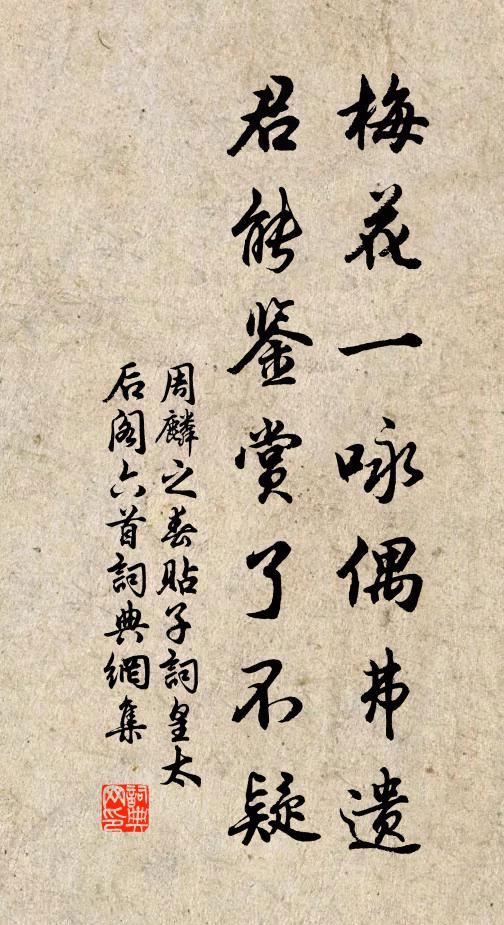 梅花一咏偶弗遗
君能鉴赏了不疑
周麟之春贴子詞皇太
后阁六首詞典網集
詞典网印